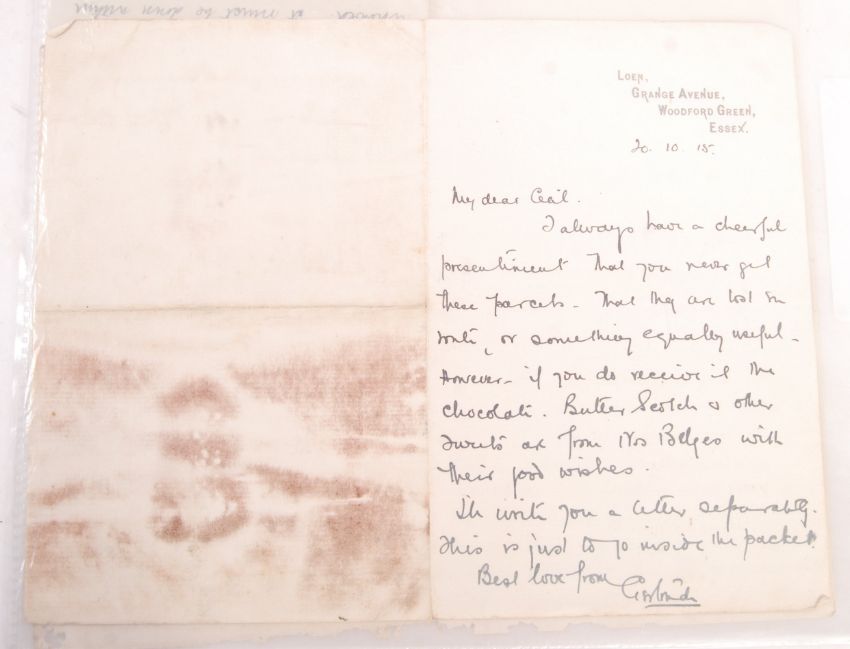 Loen,
Grange Avenue,
Woodford Green,
Essex.
20. 10. 15.
My dear Cecil.
I always have a cheerful
presentiment that you never get
these parcels - that they are lost en
route, or something equally useful -
However - if you do receive it the
chocolate. Butter Scotch & other
sweets are from Nos Belges with
their good wishes.
I'll write you a letter separately.
This is just to go inside the packet.
Best love from
Gertrude